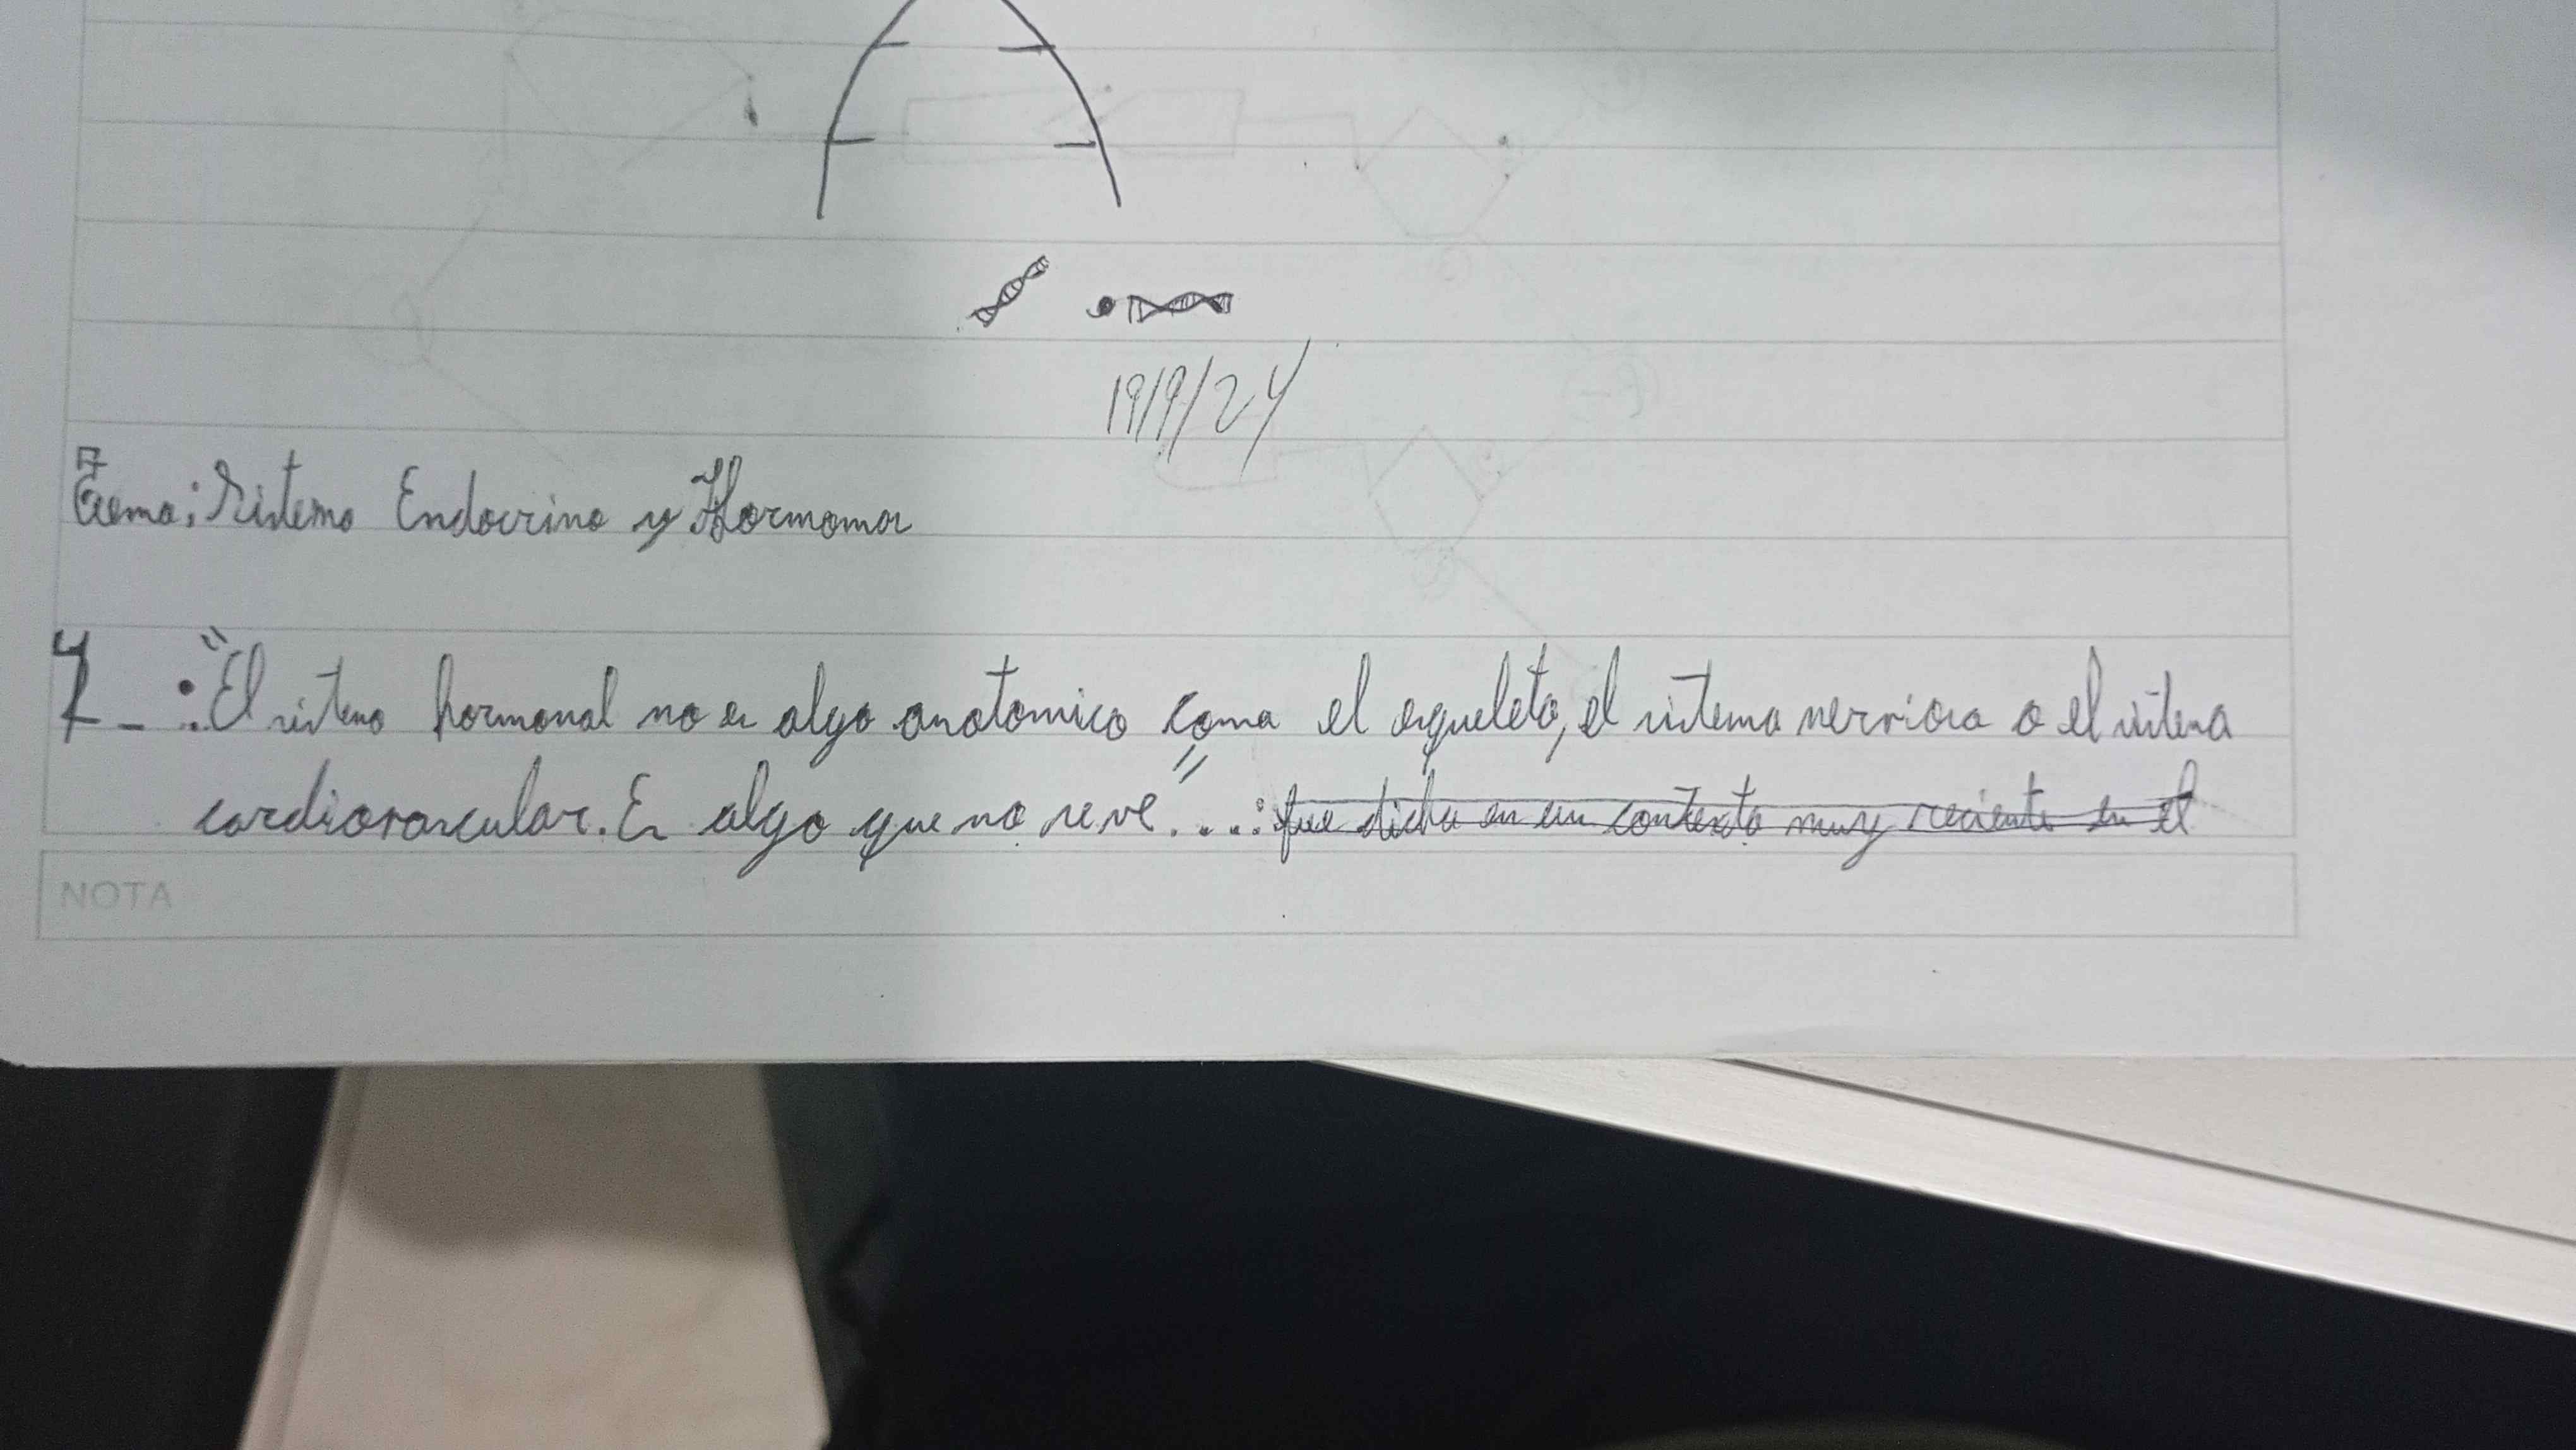 19/9/24
Tema: Sistema Endocrino y Hormonas
1- : "El sistema hormonal no es algo anatomico como el esqueleto, el sistema nervioso o el sistema
cardiovascular. Es algo que no se ve" ...: fue dicho en un contexto muy reciente en el
NOTA